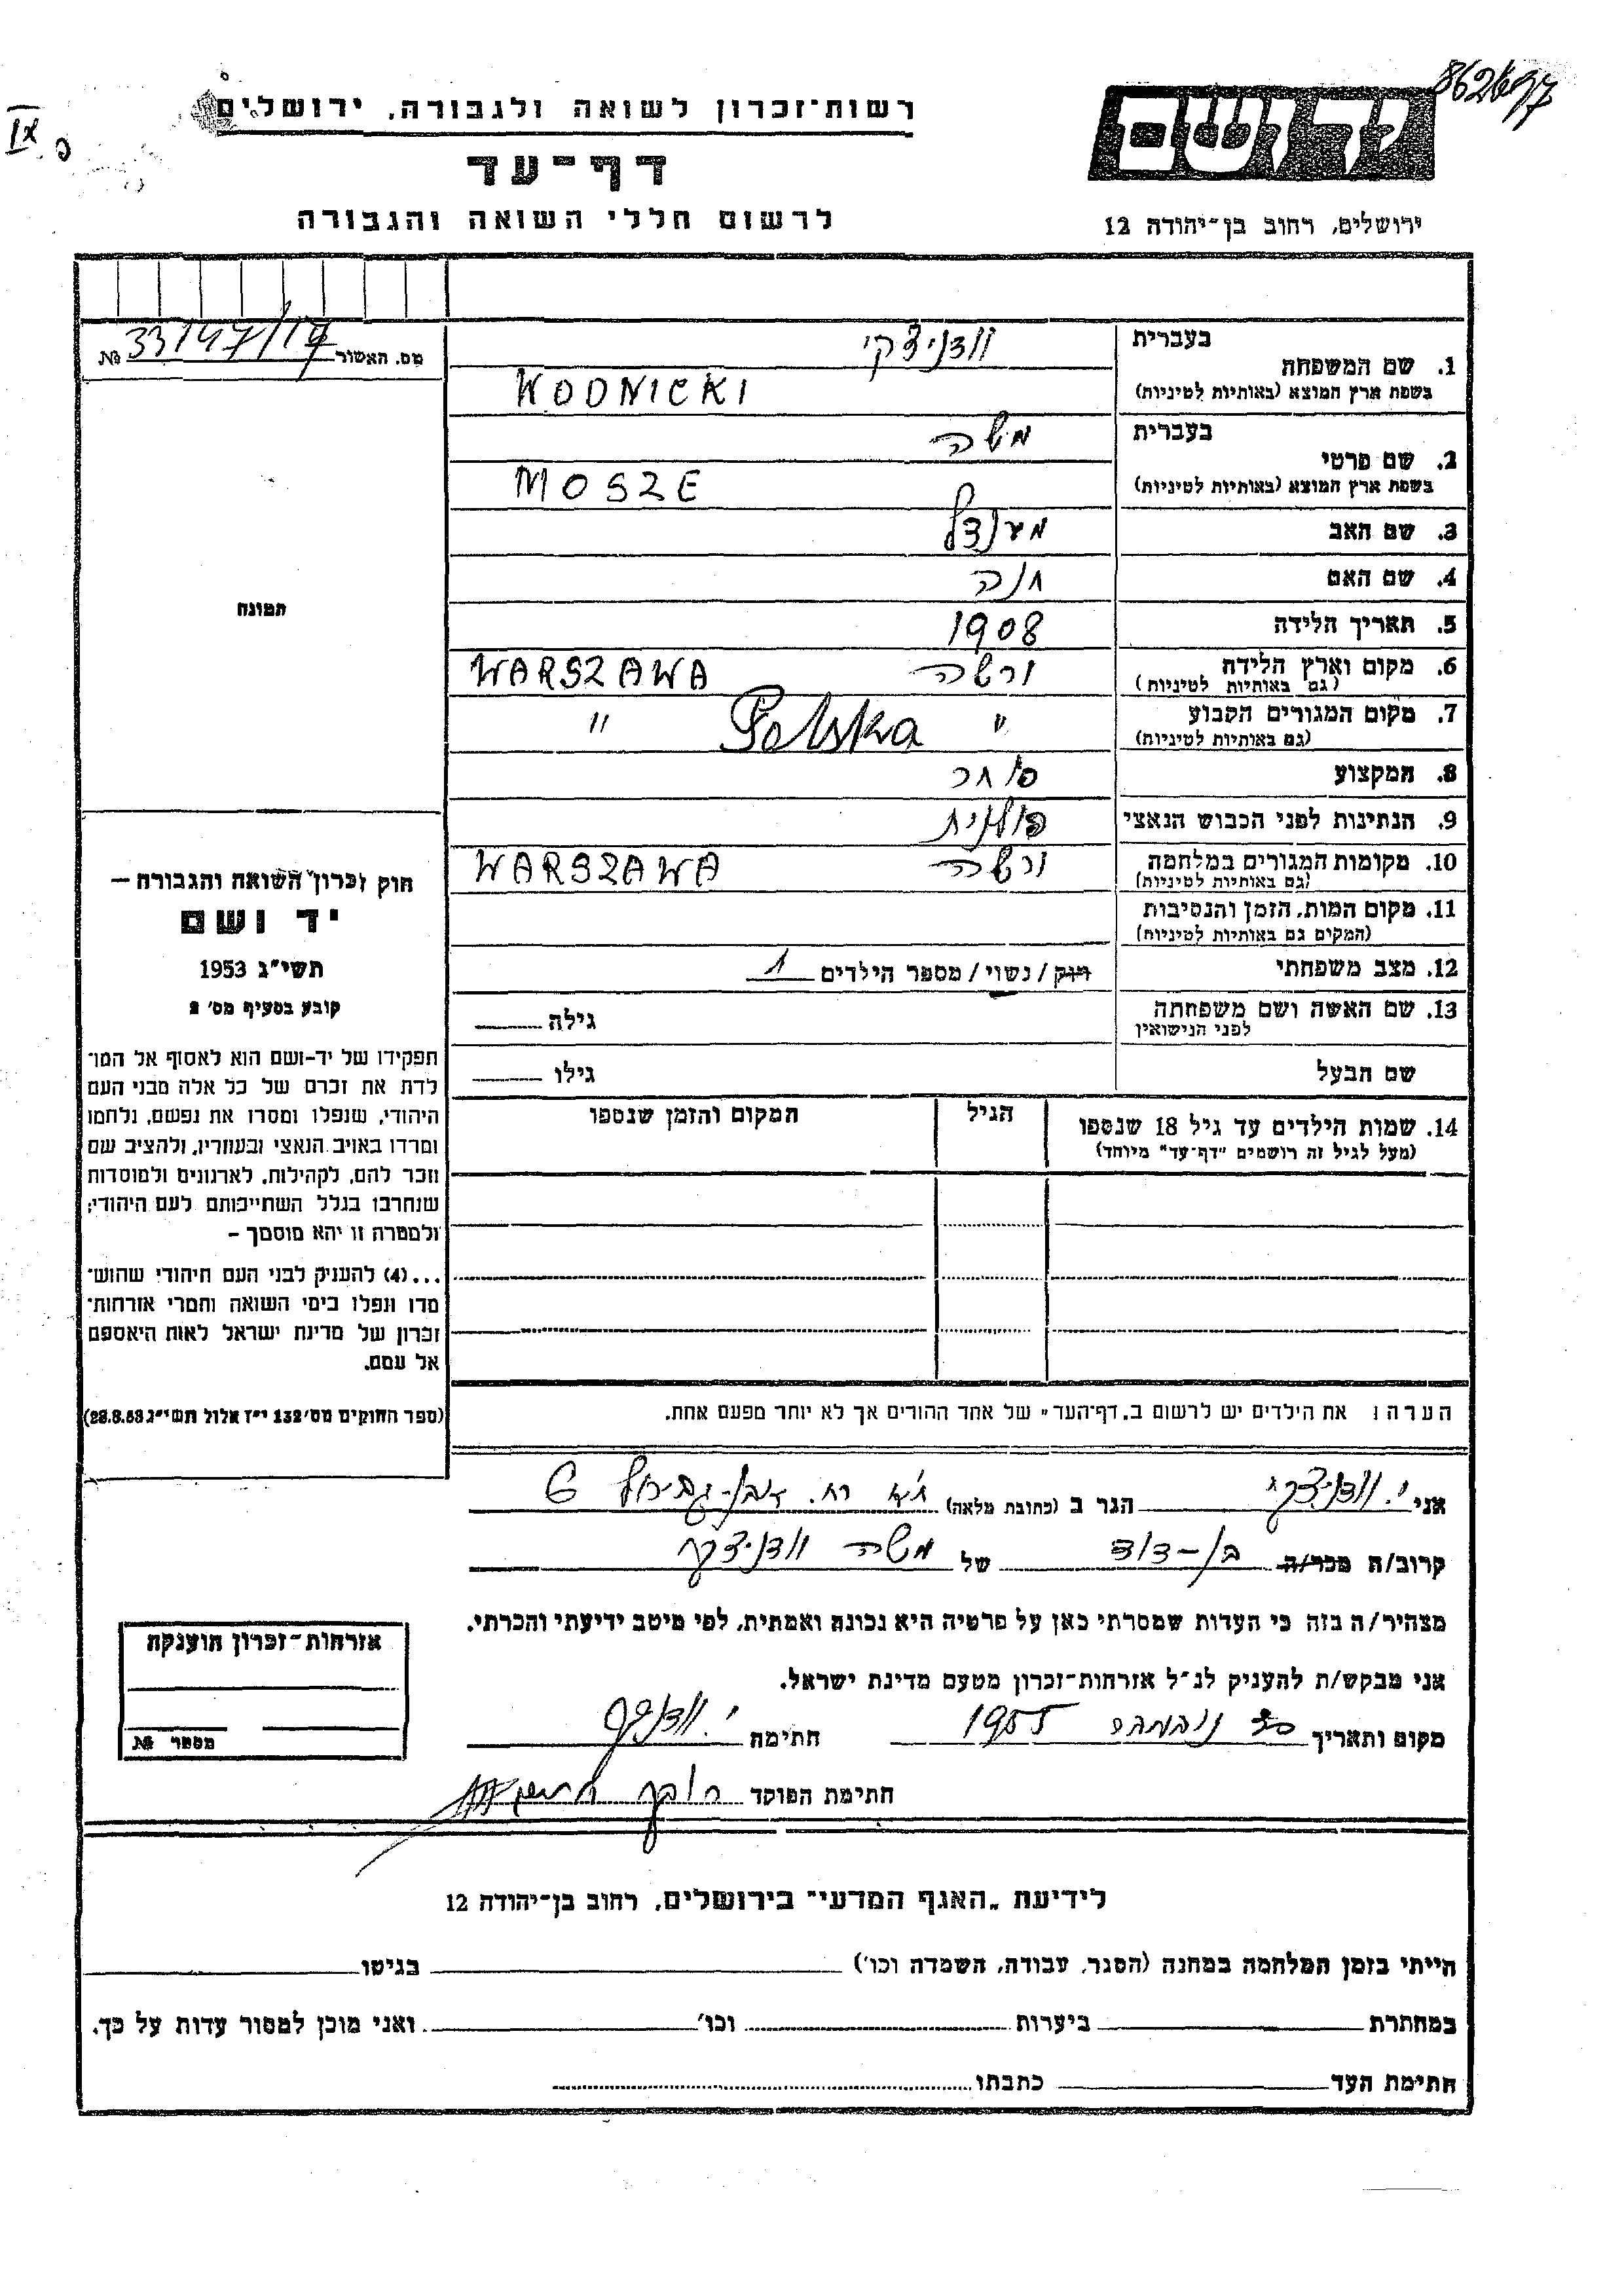 862677
IX
רשות־זכרון לשואה ולגבורה, ירושלים
דף־עד
לרשום חללי השואה והגבורה
ידושם
ירושלים, רחוב בן־יהודה 12
מס. האשור 33147/17 №
תמונה
1. שם המשפחה
בעברית וודניצקי
בשפת ארץ המוצא (באותיות לטיניות) WODNICKI
2. שם פרטי
בעברית משה
בשפת ארץ המוצא (באותיות לטיניות) MOSZE
3. שם האב מענדל
4. שם האם חנה
5. תאריך הלידה 1908
6. מקום וארץ הלידה ורשה WARSZAWA
(גם באותיות לטיניות)
7. מקום המגורים הקבוע " Polska "
(גם באותיות לטיניות)
8. המקצוע סוחר
9. הנתינות לפני הכבוש הנאצי פולנית
10. מקומות המגורים במלחמה ורשה WARSZAWA
(גם באותיות לטיניות)
11. מקום המות, הזמן והנסיבות
(המקום גם באותיות לטיניות)
12. מצב משפחתי רווק / נשוי / מספר הילדים 1
13. שם האשה ושם משפחתה גילה
לפני הנישואין
שם הבעל גילו
14. שמות הילדים עד גיל 18 שנספו הגיל המקום והזמן שנספו
(מעל לגיל זה רושמים "דף־עד" מיוחד)
הערה: את הילדים יש לרשום ב„דף־העד" של אחד ההורים אך לא יותר מפעם אחת.
חוק זכרון השואה והגבורה —
יד ושם
תשי"ג 1953
קובע בסעיף מס' 2
תפקידו של יד-ושם הוא לאסוף אל המו־
לדת את זכרם של כל אלה מבני העם
היהודי, שנפלו ומסרו את נפשם, נלחמו
ומרדו באויב הנאצי ובעוזריו, ולהציב שם
וזכר להם, לקהילות, לארגונים ולמוסדות
שנחרבו בגלל השתייכותם לעם היהודי;
ולמטרה זו יהא מוסמך –
...(4) להעניק לבני העם היהודי שהוש־
מדו ונפלו בימי השואה והמרי אזרחות־
זכרון של מדינת ישראל לאות היאספם
אל עמם.
(ספר החוקים מס' 132 י"ז אלול תשי"ג 28.8.53)
אני י. וודניצקי הגר ב (כתובת מלאה) ת"א רח. אבן-גבירול 6
קרוב/ה מכר/ה בן-דוד של משה וודניצקי
מצהיר/ה בזה כי העדות שמסרתי כאן על פרטיה היא נכונה ואמתית, לפי מיטב ידיעתי והכרתי.
אני מבקש/ת להעניק לנ"ל אזרחות־זכרון מטעם מדינת ישראל.
מקום ותאריך נובמבר 1955 חתימה
חתימת הפוקד
אזרחות־זכרון הוענקה
מספר №
לידיעת „האגף המדעי" בירושלים, רחוב בן־יהודה 12
הייתי בזמן המלחמה במחנה (הסגר, עבודה, השמדה וכו') בגיטו
במחתרת ביערות וכו' ואני מוכן למסור עדות על כך.
חתימת העד כתבתו